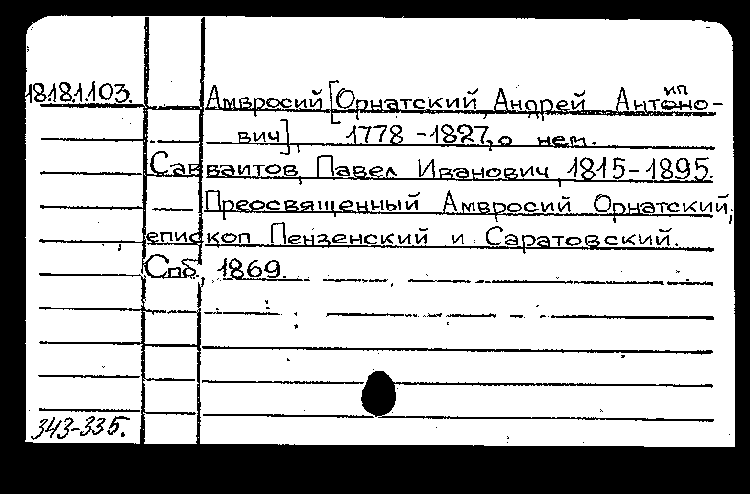 18.181.1.103. Амвросий [Орнатский, Андрей Антоно-
ип
вич], 1778-1827, о нем.
Савваитов, Павел Иванович, 1815-1895.
Преосвященный Амвросий Орнатский,
епископ Пензенский и Саратовский.
Спб, 1869.
343-335.